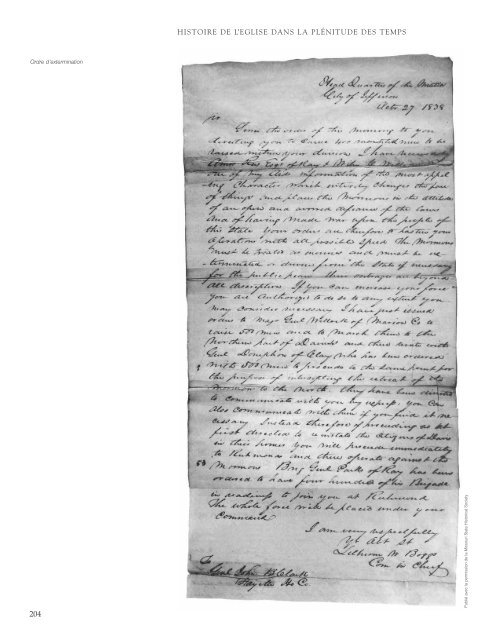 HISTOIRE DE L'EGLISE DANS LA PLÉNITUDE DES TEMPS
Ordre d'extermination
Head Quarters of the Militia
City of Jefferson
Octo. 27 1838
Sir
Since the order of the morning to you
directing you to cause four mounted men to be
raised within your division I have received by
Amos Rees Esqr of Ray &
one of my aids information of the most appal
ing character which entirely changes the face
of things and places the Mormons in the attitude
of an open and avowed defiance of the Laws
and of having made war upon the people of
this State Your orders are therefore to hasten your
operations with all possible speed The Mormons
must be treated as enemies and must be ex
terminated or driven from the State if necessary
for the public peace their outrages are beyond
all description If you can increase your force
you are authorized to do so to any extent you
may consider necessary I have just issued
orders to Majr Genl Willock of Marion Co to
raise 500 men and to march them to the
Northern part of Daviess and there unite with
Genl Doniphan of Clay who has been ordered
with 500 men to proceed to the same point for
the purpose of intercepting the retreat of the
Mormons to the North They have been directed
to communicate with you by express, you can
also communicate with them if you find it ne
cessary Instead therefore of proceeding as at
first directed to reinstate the citizens of Daviess
in their homes you will proceed immediately
to Richmond and there operate against the
Mormons Brig Genl Parks of Ray has been
ordered to have four hundred of his Brigade
in readiness to join you at Richmond
The whole force will be placed under your
Command
I am very respectfully
yr obt St
Lilburn W Boggs
Com in Chief
To
Genl John B Clark
Fayette Ho Co
Publié avec la permission de la Missouri State Historical Society
204